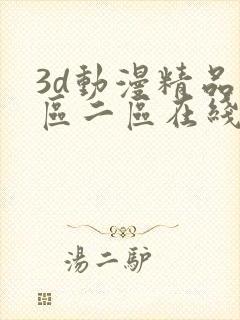 3d動漫精品
區二區在綫
湯二驴